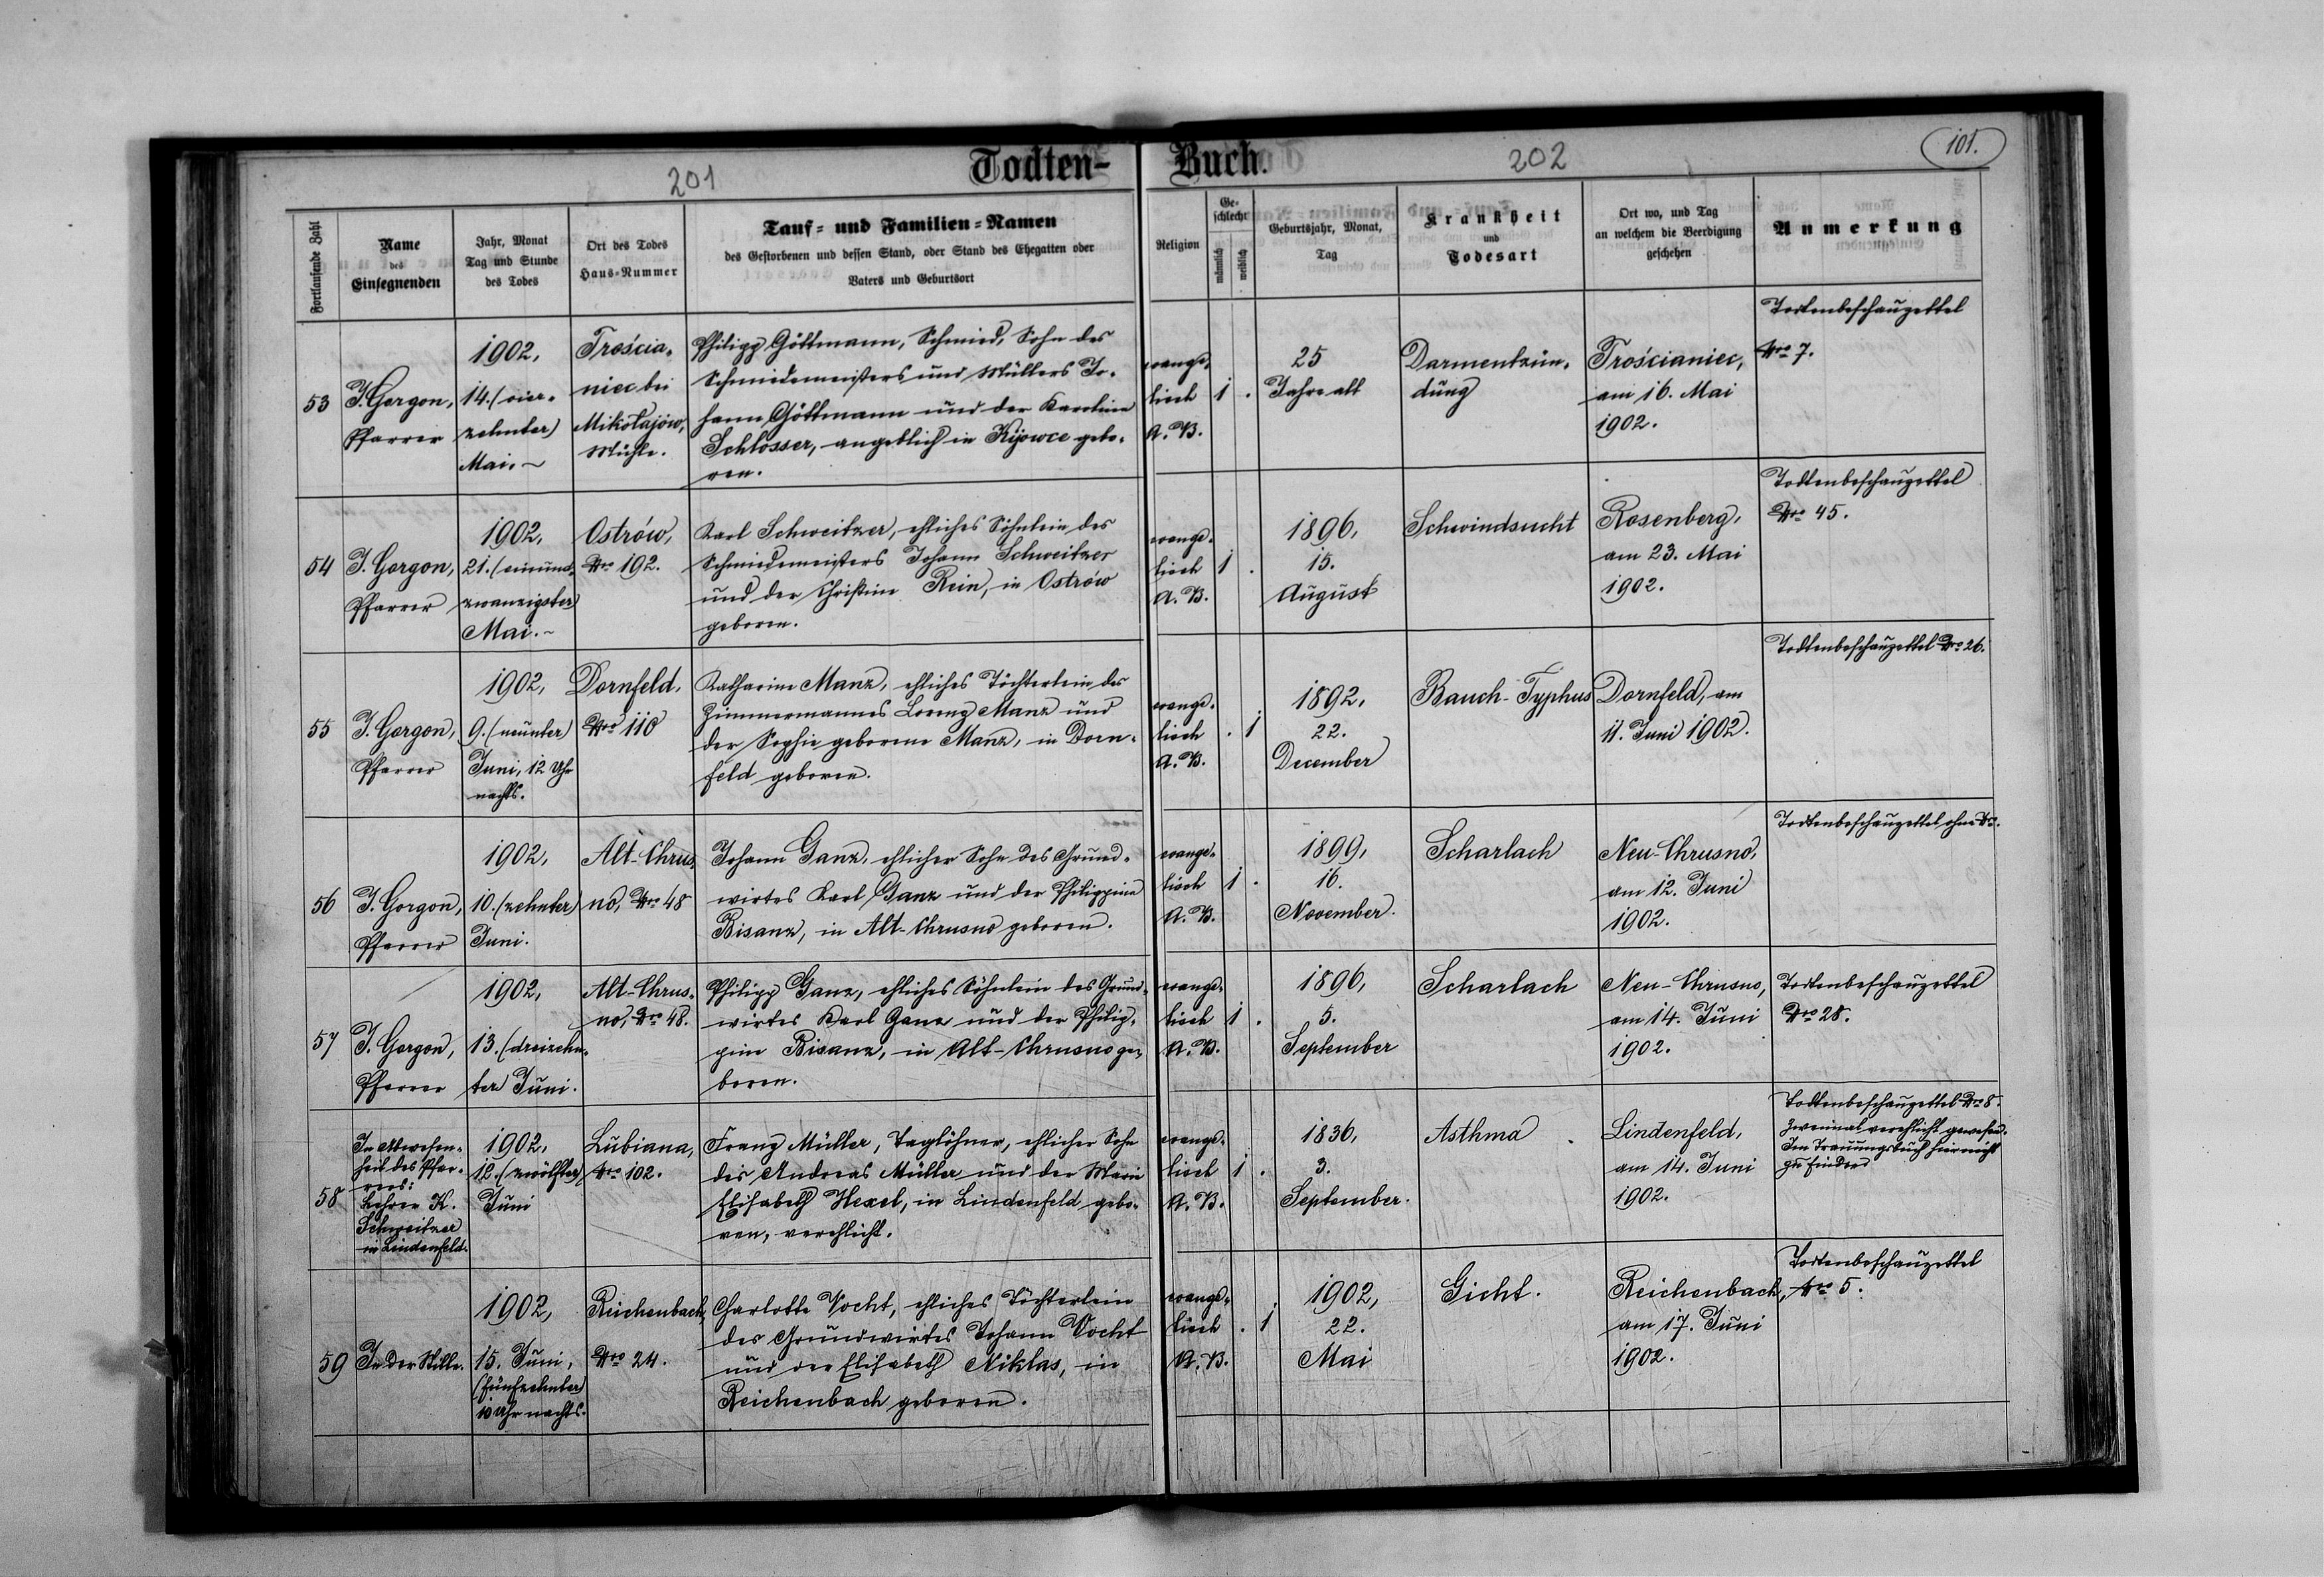 201
Todten-
Buch.
202
101.
Fortlaufende Zahl
Name
des
Einsegnenden
Jahr, Monat
Tag und Stunde
des Todes
Ort des Todes
Haus-Nummer
Tauf- und Familien-Namen
des Gestorbenen und dessen Stand, oder Stand des Ehegatten oder
Vaters und Geburtsort
Religion
Ge-
schlecht
männlich
weiblich
Geburtsjahr, Monat,
Tag
Krankheit
und
Todesart
Ort wo, und Tag
an welchem die Beerdigung
geschehen
Anmerkung
53
J. Gorgon,
Pfarrer
1902,
14. (vier-
zehnter)
Mai.~
Trościa-
niec bei
Mikołajów,
Mühle.
Philipp Göttmann, Schmied, Sohn des
Schmiedemeisters und Müllers Jo-
hann Göttmann und der Karoline
Schlosser, angeblich in Kijowce gebo-
ren.
evange-
lisch
A. B.
1 .
25
Jahre alt
Darmentzün-
dung
Trościaniec,
am 16. Mai
1902.
Todtenbeschauzettel
Nro 7.
54
J. Gorgon,
Pfarrer
1902,
21. (einund-
zwanzigster)
Mai.~
Ostrów,
Nro 192.
Karl Schweitzer, ehliches Söhnlein des
Schmiedemeisters Johann Schweitzer
und der Christine Rein, in Ostrów
geboren.
evange-
lisch
A. B.
1 .
1896,
15.
August
Schwindsucht
Rosenberg,
am 23. Mai
1902.
Todtenbeschauzettel
Nro 45.
55
J. Gorgon,
Pfarrer
1902,
9. (neunter)
Juni, 12 Uhr
nachts.
Dornfeld,
Nro 110
Katharine Manz, ehliches Töchterlein des
Zimmermannes Lorenz Manz und
der Sophie geborene Manz, in Dorn-
feld geboren.
evange-
lisch
A. B.
. 1
1892,
22.
December
Bauch-Typhus
Dornfeld, am
11. Juni 1902.
Todtenbeschauzettel Nro 26.
56
J. Gorgon,
Pfarrer
1902,
10. (zehnter)
Juni.
Alt-Chrus-
no, Nro 48
Johann Ganz, ehlicher Sohn des Grund-
wirtes Karl Ganz und der Philippine
Bisanz, in Alt-Chrusno geboren.
evange-
lisch
A. B.
1 .
1899,
16.
November.
Scharlach
Neu-Chrusno,
am 12. Juni
1902.
Todtenbeschauzettel ohne Nro.
57
J. Gorgon,
Pfarrer
1902,
13. (dreizehn-
ter) Juni.
Alt-Chrus-
no, Nro 48.
Philipp Ganz, ehliches Söhnlein des Grund-
wirtes Karl Ganz und der Philip-
pine Bisanz, in Alt-Chrusno ge-
boren.
evange-
lisch
A. B.
1 .
1896,
5.
September
Scharlach
Neu-Chrusno,
am 14. Juni
1902.
Todtenbeschauzettel
Nro 28.
58
In Abwesen-
heit des Pfar-
rers:
Lehrer K.
Schweitzer
in Lindenfeld.
1902,
12. (zwölfter)
Juni
Lubiana,
Nro 102.
Franz Müller, Taglöhner, ehlicher Sohn
des Andreas Müller und der Marie
Elisabeth Hexel, in Lindenfeld gebo-
ren, verehlicht.
evange-
lisch
A. B.
1 .
1836,
3.
September.
Asthma
Lindenfeld,
am 14. Juni
1902.
Todtenbeschauzettel Nro 8.
Zweimal verehlicht gewesen.
Im Trauungsbuch hier nicht
zu finden
59
In der Stille.
1902,
15. Juni,
(fünfzehnter)
10 Uhr nachts.
Reichenbach,
Nro 24.
Charlotte Vocht, ehliches Töchterlein
des Grundwirtes Johann Vocht
und der Elisabeth Niklas, in
Reichenbach geboren.
evange-
lisch
A. B.
. 1
1902,
22.
Mai
Gicht.
Reichenbach,
am 17. Juni
1902.
Todtenbeschauzettel
Nro 5.